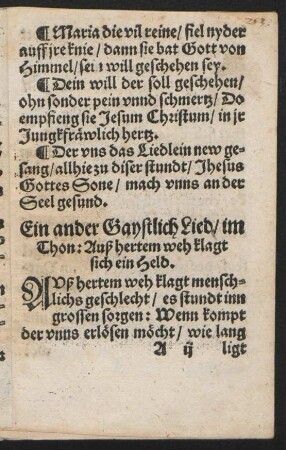 ¶ Maria die vil reine/ fiel nyder
auff jre knie/ dann sie bat Gott von
Himmel/ sei1 will geschehen sey.
¶ Dein will der soll geschehen/
ohn sonder pein vnnd schmertz/ Do
empfieng sie Jesum Christum/ in jr
Jungkfräwlich hertz.
¶ Der vns das Liedlein new ge-
sang/ allhie zu diser stundt/ Jhesus
Gottes Sone/ mach vnns an der
Seel gesund.
Ein ander Gaystlich Lied/ im
Thon: Auß hertem weh klagt
sich ein Held.
AVß hertem weh klagt mensch-
lichs geschlecht/ es stundt inn
grossen sorgen: Wenn kompt
der vnns erlösen möcht/ wie lang
A ij ligt